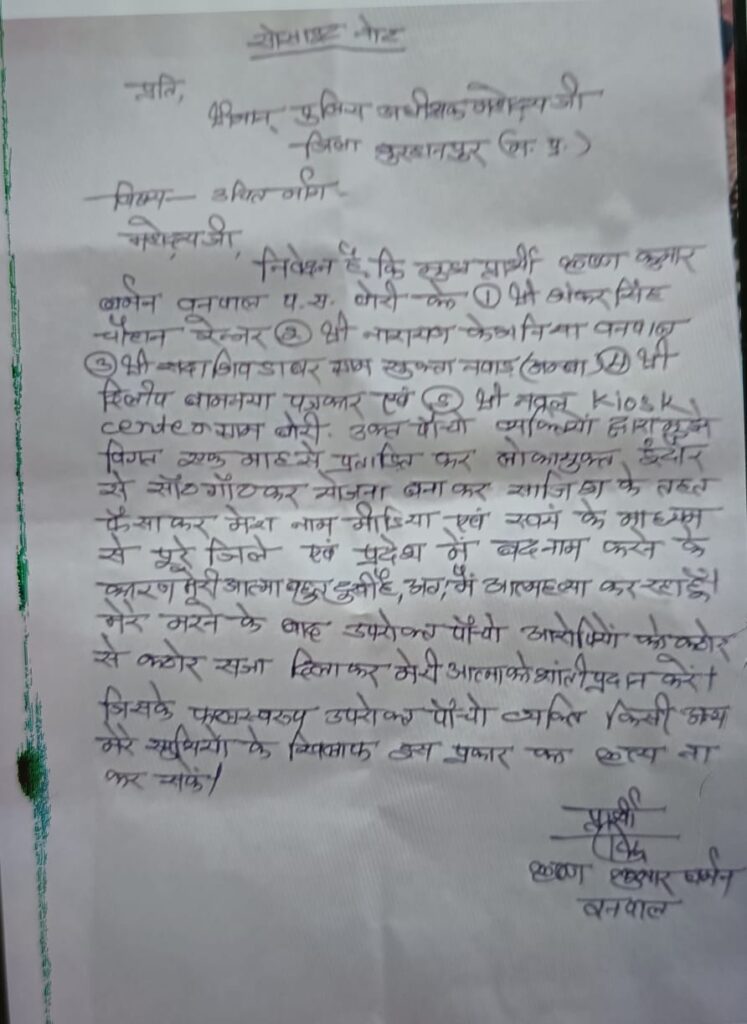 सोसाइट नोट
प्रति,
श्रीमान् पुलिस अधीक्षक महोदय जी
जिला बुरहानपुर (म. प्र.)
विषय - उचित मांग -
महोदय जी,
निवेदन है, कि मुझ प्रार्थी कृष्ण कुमार
बर्मन वनपाल प.स. बोरी के ① श्री शंकर सिंह
चौहान रेन्जर ② श्री नारायण वनपाल
③ श्री सदाशिव डाबर ग्राम ④ श्री
दिलीप बामनया पत्रकार एवं ⑤ श्री नवल Kiosk
center ग्राम बोरी. उक्त पाँचो व्यक्तियों द्वारा मुझे
विगत एक माह से प्रताडित कर लोकायुक्त इंदौर
से साँठगाँठ कर योजना बना कर साजिश के तहत
फँसाकर मेरा नाम मीडिया एवं स्वयं के माध्यम
से पूरे जिले एवं प्रदेश में बदनाम करने के
कारण मेरी आत्मा बहुत दुखी है, अतः मैं आत्महत्या कर रहा हूँ।
मेरे मरने के बाद उपरोक्त पाँचो आरोपियों को कठोर
से कठोर सजा दिलाकर मेरी आत्मा को शांती प्रदान करें।
जिसके फलस्वरुप उपरोक्त पाँचो व्यक्ति किसी अन्य
मेरे साथियो के खिलाफ इस प्रकार का कृत्य ना
कर सकें।
प्रार्थी
कृष्ण कुमार बर्मन
वनपाल